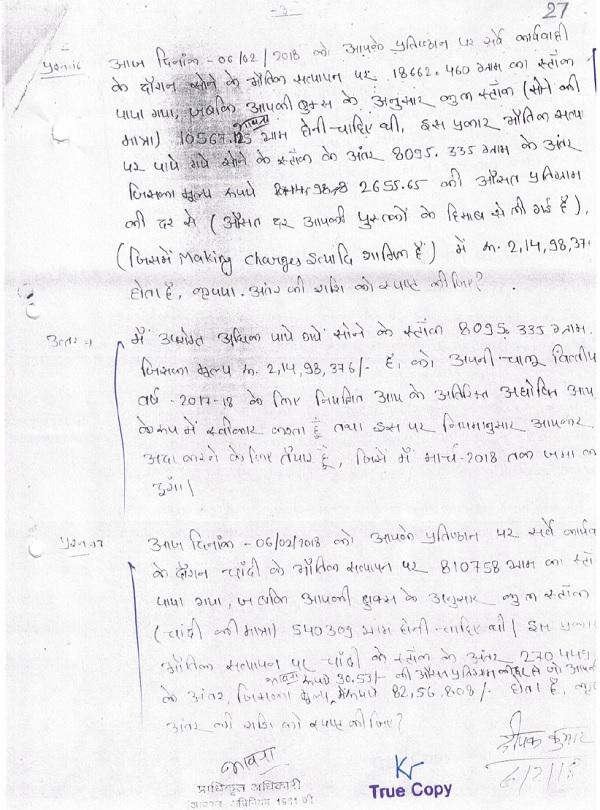 -3-
27
प्रश्न.16 आज दिनांक - 06/02/2018 को आपके प्रतिष्ठान पर सर्वे कार्यवाही
के दौरान सोने के भौतिक सत्यापन पर 18662.460 ग्राम का स्टॉक
पाया गया, जबकि आपकी बुक्स के अनुसार कुल स्टॉक (सोने की
मात्रा) 10567.125 ग्राम होनी चाहिए थी, इस प्रकार भौतिक सत्या
पर पाये गये सोने के स्टॉक के अंतर 8095.335 ग्राम के अंतर
जिसका मूल्य रूपये 2655.65 की औसत प्रतिग्राम
की दर से (औसत दर आपकी पुस्तकों के हिसाब से ली गई है),
(जिसमें Making Charges इत्यादि शामिल हैं) में रू. 2,14,98,37
होता है, कृपया अंतर की राशि को स्पष्ट कीजिए?
उत्तर → मैं उपरोक्त अधिक पाये गये सोने के स्टॉक 8095.335 ग्राम
जिसका मूल्य रू. 2,14,98,376/- है, को अपनी चालू वित्तीय
वर्ष - 2017-18 के लिए नियमित आय के अतिरिक्त अघोषित आय
के रूप में स्वीकार करता हूँ तथा इस पर नियमानुसार आयकर
अदा करने के लिए तैयार हूँ, जिसे मैं मार्च-2018 तक जमा क
दूंगा।
प्रश्न.17 आज दिनांक - 06/02/2018 को आपके प्रतिष्ठान पर सर्वे कार्यव
के दौरान चांदी के भौतिक सत्यापन पर 810758 ग्राम का स्टॉ
पाया गया, जबकि आपकी बुक्स के अनुसार कुल स्टॉक
(चांदी की मात्रा) 540309 ग्राम होनी चाहिए थी। इस प्रकार
भौतिक सत्यापन पर चांदी के स्टॉक के अंतर 270449
रूपये 30.53/- की औसत प्रतिग्राम की दर से जो आपकी
के अंतर, जिसका मूल्य रूपये 82,56,808/- होता है, कृप
अंतर की राशि को स्पष्ट कीजिए?
दीपक कुमार
6/2/18
भावना
प्राधिकृत अधिकारी
आयकर अधिनियम 1961 की
True Copy